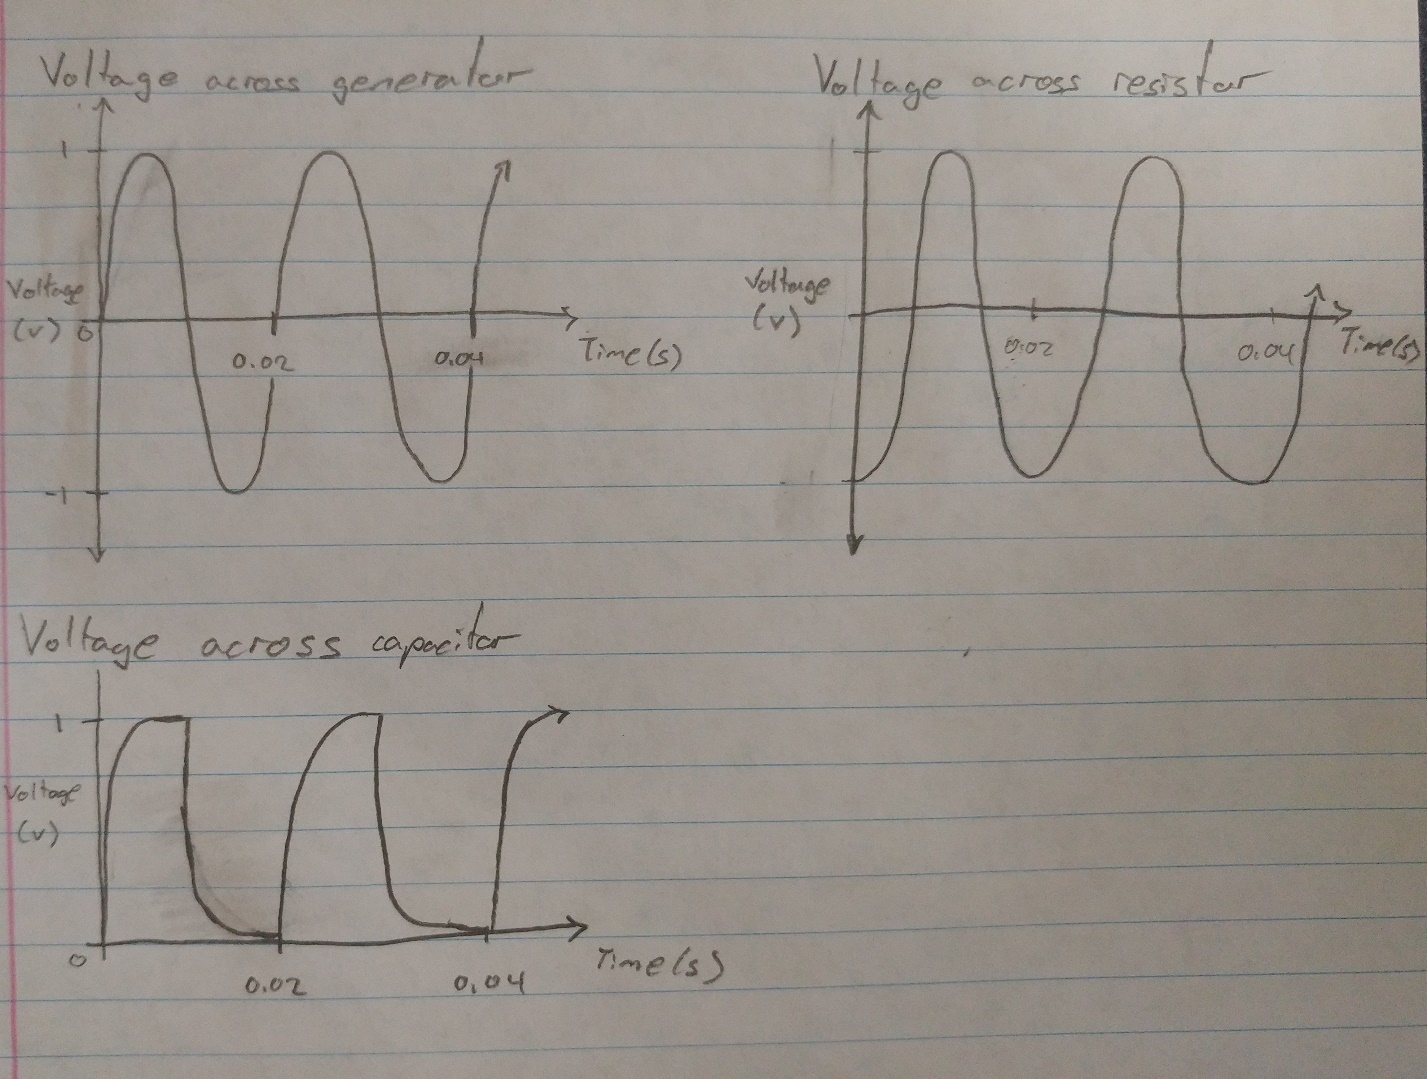 Voltage across generator
1
Voltage
(v) 0
0.02
0.04
Time(s)
-1
Voltage across resistor
1
Voltage
(v)
0.02
0.04
Time(s)
Voltage across capacitor
1
Voltage
(v)
0
0.02
0.04
Time(s)